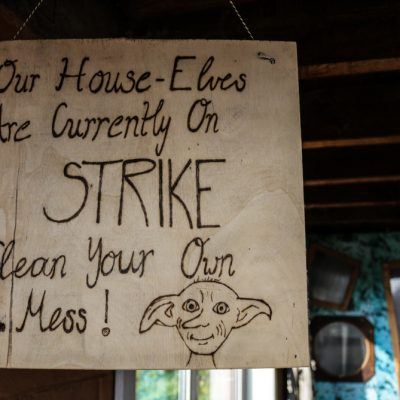 Our House-Elves
Are Currently On
STRIKE
Clean Your Own
Mess!